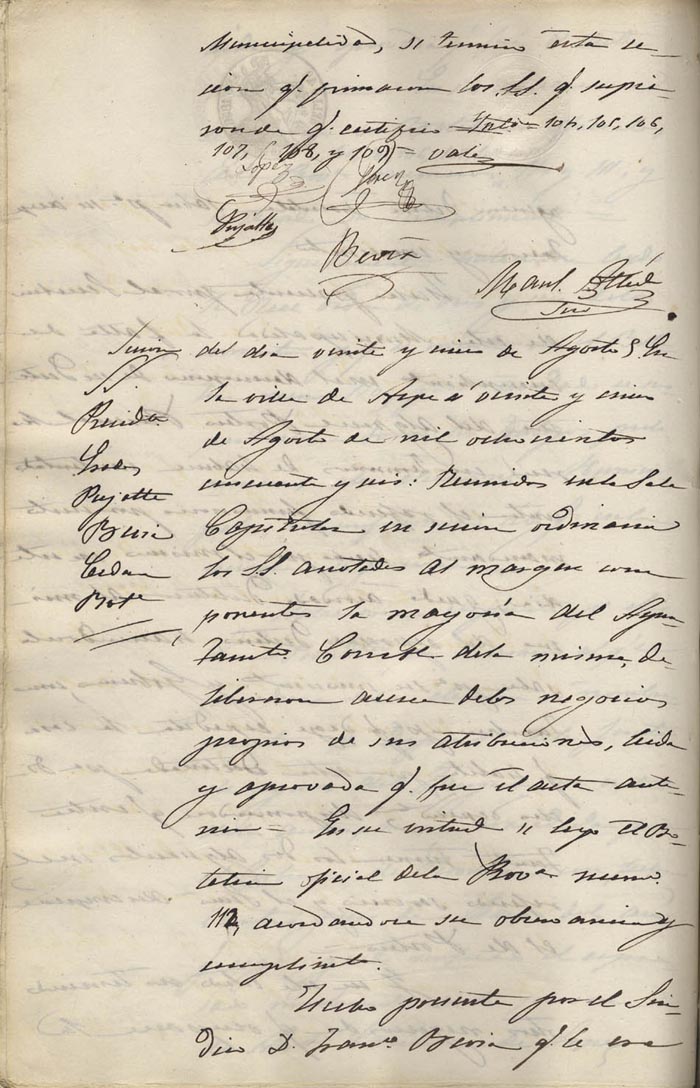 Municipalidad, se termino esta se-
cion qᵉ. firmaron los SS. qᵉ. supie-
ron de qᵉ. certifico = 104, 105, 106,
107, 108, y 109) = vale
Lopez
Pujalte
Beviá
Manl.
Srio
Secion del dia veinte y cinco de Agosto § En
SS
la villa de Aspe á veinte y cinco
Presidte
de Agosto de mil ochocientos
Prades
cincuenta y seis: Reunidos en la Sala
Pujalte
Capitular en secion ordinaria
Bevia
los SS. anotados al margen com
Cerdan
ponentes la mayoría del Ayun
Bote
tamto. Constl. dela misma, de-
liberaron acerca delos negocios
propios de sus atribuciones, leida
y aprovada qᵉ. fue el acta ante-
rior = En su virtud se leyo el Bo-
letin oficial dela Provª. num.
112, acordandose su observancia y
cumplimto.
Hecho presente por el Sin-
dico D. Franco. Bevia qᵉ. le era